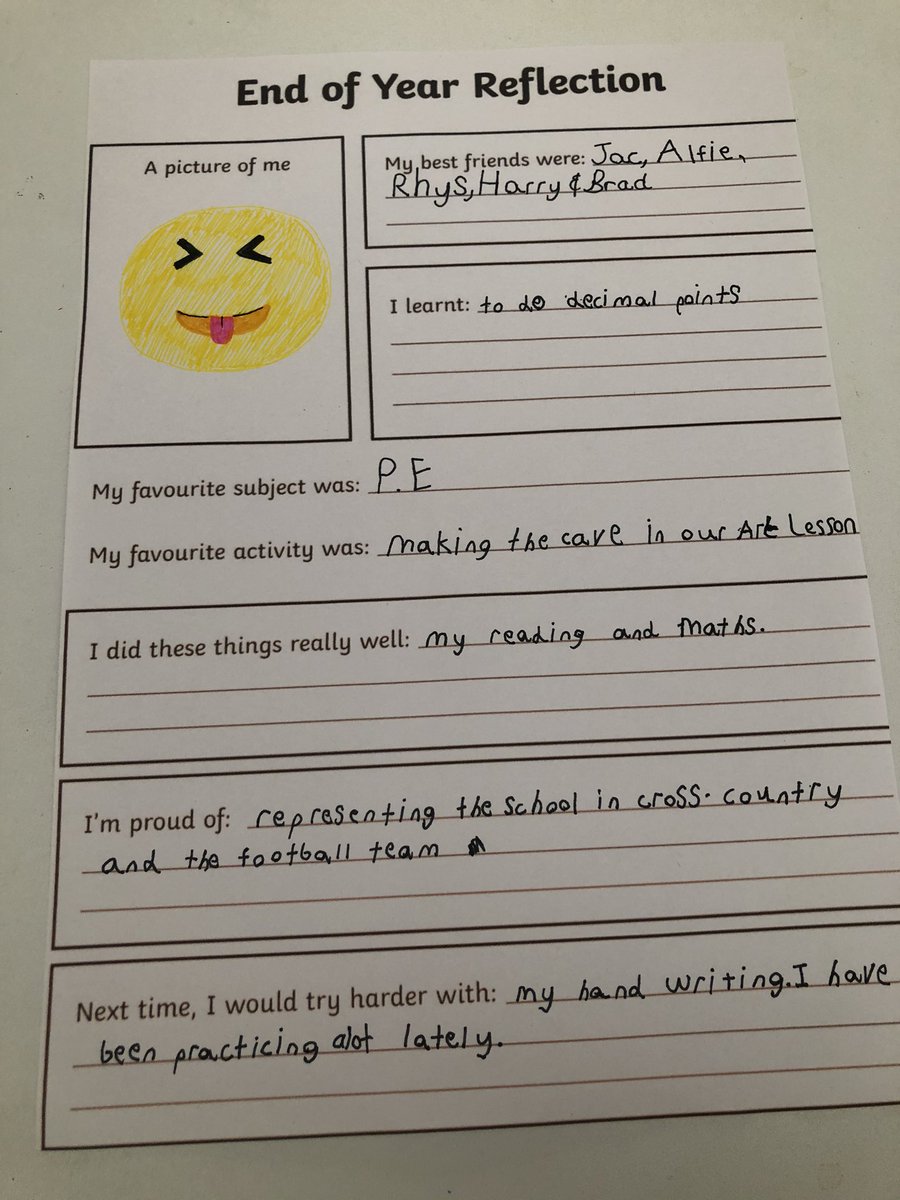 End of Year Reflection
A picture of me
My best friends were: Jac, Alfie,
Rhys, Harry & Brad
I learnt: to do decimal points
My favourite subject was: P.E
My favourite activity was: making the cave in our Art Lesson
I did these things really well: my reading and maths.
I'm proud of: representing the school in cross-country
and the football team
Next time, I would try harder with: my hand writing. I have
been practicing alot lately.